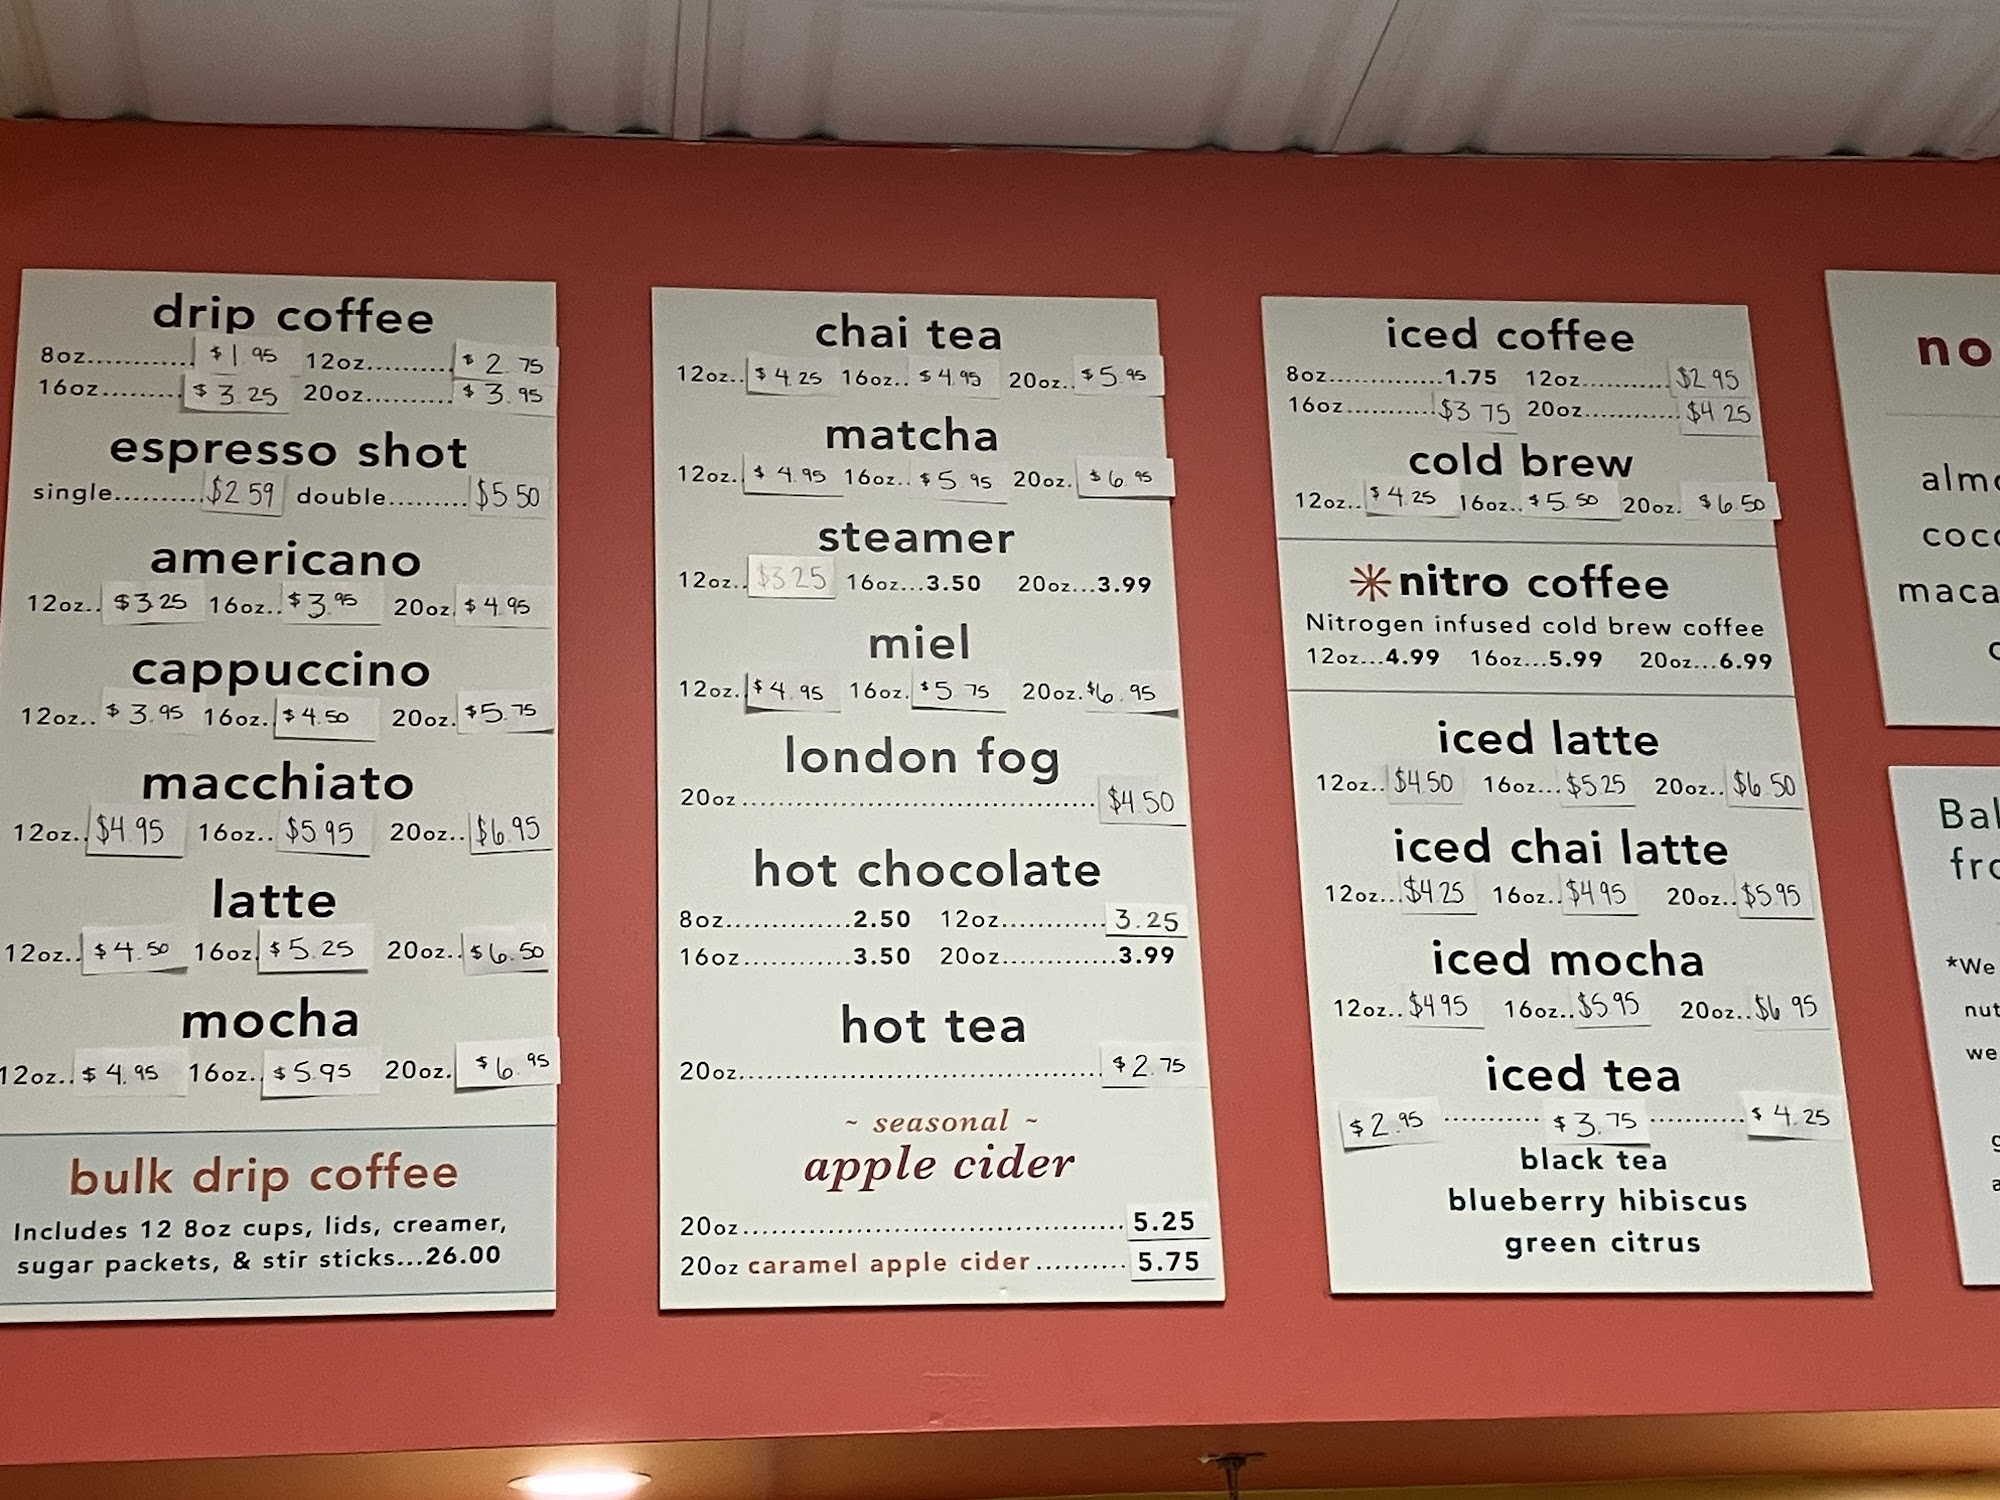 drip coffee
8oz............ $1.95 12oz.......... $2.75
16oz......... $3.25 20oz.......... $3.95
espresso shot
single.......... $2.59 double......... $5.50
americano
12oz.. $3.25 16oz.. $3.95 20oz. $4.95
cappuccino
12oz.. $3.95 16oz. $4.50 20oz. $5.75
macchiato
12oz.. $4.95 16oz.. $5.95 20oz.. $6.95
latte
12oz.. $4.50 16oz $5.25 20oz.. $6.50
mocha
12oz.. $4.95 16oz.. $5.95 20oz. $6.95
bulk drip coffee
Includes 12 8oz cups, lids, creamer,
sugar packets, & stir sticks...26.00
chai tea
12oz.. $4.25 16oz.. $4.95 20oz.. $5.95
matcha
12oz. $4.95 16oz.. $5.95 20oz. $6.95
steamer
12oz.. $3.25 16oz...3.50 20oz...3.99
miel
12oz. $4.95 16oz. $5.75 20oz. $6.95
london fog
20oz.......................................... $4.50
hot chocolate
8oz...............2.50 12oz............ 3.25
16oz.............3.50 20oz.............3.99
hot tea
20oz.......................................... $2.75
~ seasonal ~
apple cider
20oz............................................. 5.25
20oz caramel apple cider.......... 5.75
iced coffee
8oz...............1.75 12oz........... $2.95
16oz........... $3.75 20oz............ $4.25
cold brew
12oz.. $4.25 16oz.. $5.50 20oz. $6.50
nitro coffee
Nitrogen infused cold brew coffee
12oz...4.99 16oz...5.99 20oz...6.99
iced latte
12oz.. $4.50 16oz... $5.25 20oz.. $6.50
iced chai latte
12oz... $4.25 16oz.. $4.95 20oz.. $5.95
iced mocha
12oz.. $4.95 16oz.. $5.95 20oz.. $6.95
iced tea
$2.95 ........... $3.75 ........... $4.25
black tea
blueberry hibiscus
green citrus
no
*We
nut
we